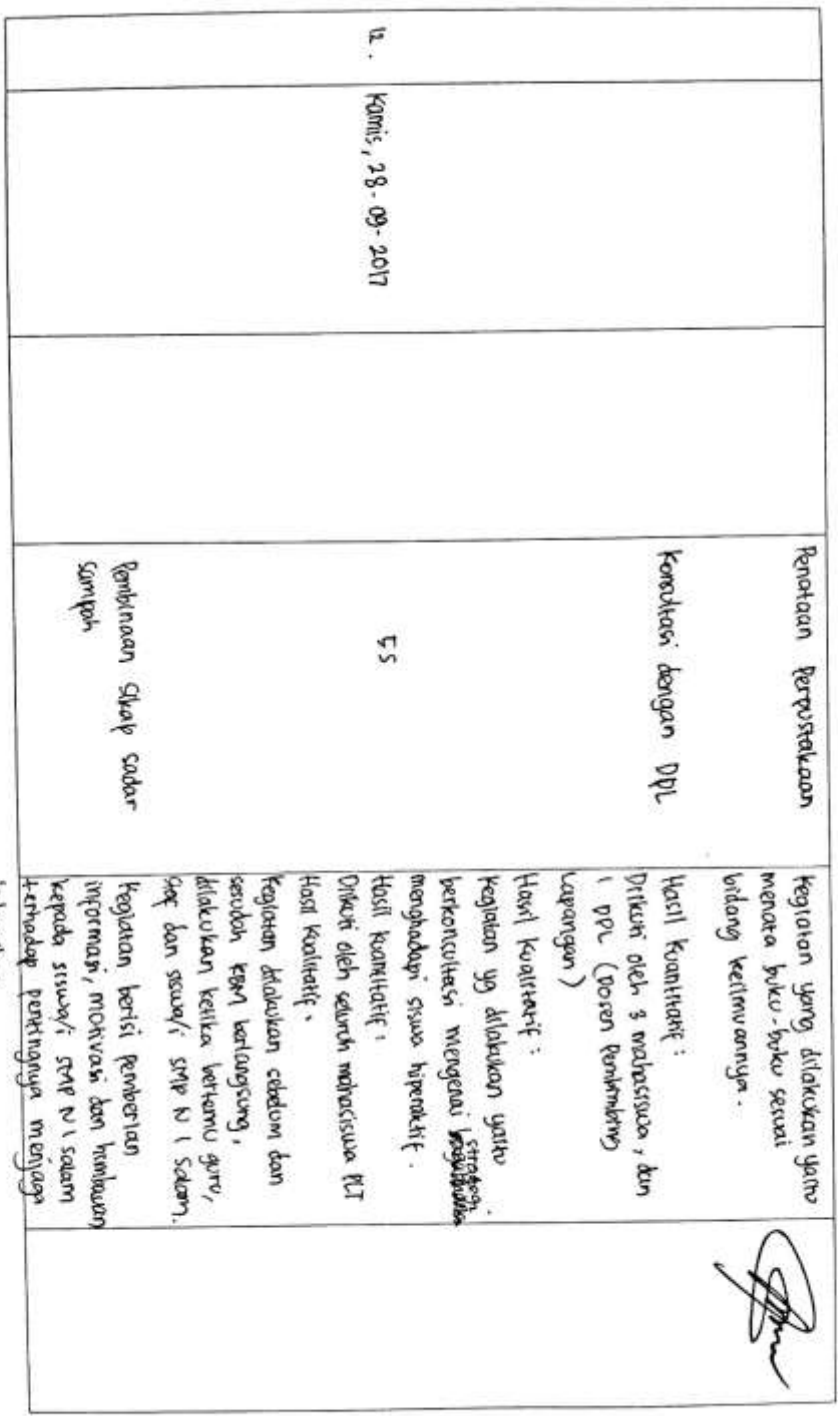 Penataan Perpustakaan
Kegiatan yang dilakukan yaitu
menata buku-buku sesuai
bidang keilmuannya.
Konsultasi dengan DPL
Hasil Kuantitatif :
Diikuti oleh 3 mahasiswa, dan
1 DPL (Dosen Pembimbing
Lapangan)
Hasil Kualitatif :
Kegiatan yg dilakukan yaitu
strategi
berkonsultasi mengenai
menghadapi siswa hiperaktif.
12.
Kamis, 28-09-2017
5S
Hasil Kuantitatif :
Diikuti oleh seluruh mahasiswa PLT
Hasil Kualitatif :
Kegiatan dilakukan sebelum dan
sesudah KBM berlangsung,
dilakukan ketika bertemu guru,
staf dan siswa/i SMP N 1 Salam.
Pembinaan Sikap Sadar
Sampah
Kegiatan berisi pemberian
informasi, motivasi dan himbauan
kepada siswa/i SMP N 1 Salam
terhadap pentingnya menjaga